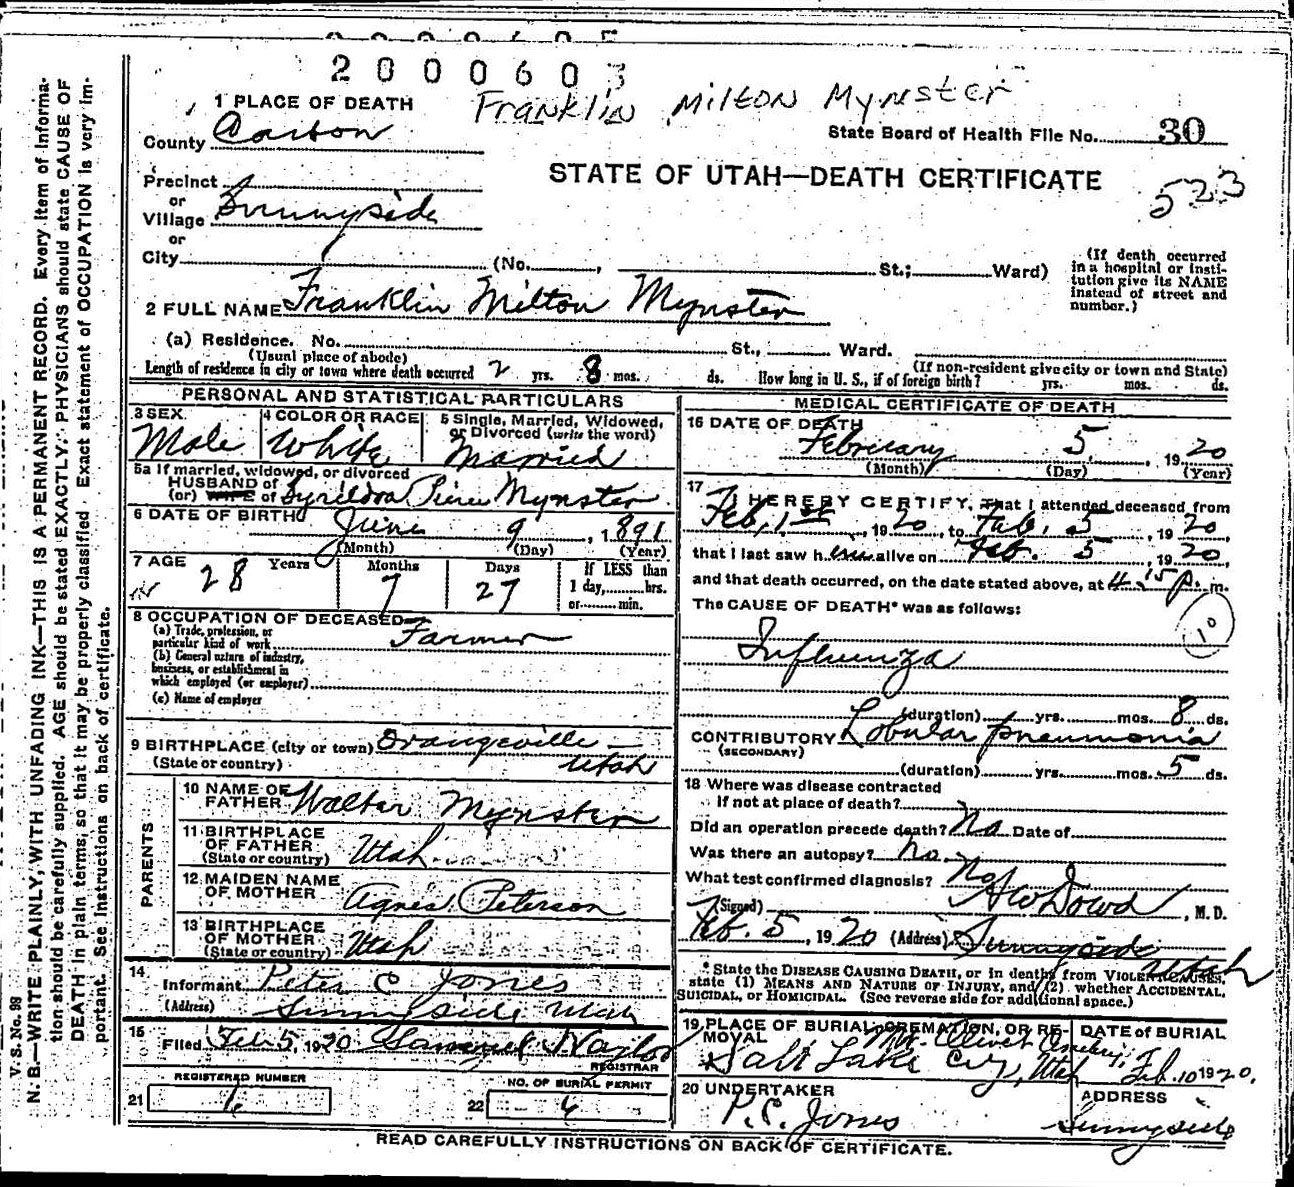 2000603
Franklin Milton Mynster
1 PLACE OF DEATH
State Board of Health File No. 30
County Carbon
STATE OF UTAH—DEATH CERTIFICATE
523
Precinct
or
Village Sunnyside
or
City (No. , St.; Ward)
(If death occurred in a hospital or institution give its NAME instead of street and number.)
2 FULL NAME Franklin Milton Mynster
(a) Residence. No. St., Ward.
(Usual place of abode) (If non-resident give city or town and State)
Length of residence in city or town where death occurred 2 yrs. 8 mos. ds. How long in U. S., if of foreign birth? yrs. mos. ds.
PERSONAL AND STATISTICAL PARTICULARS
3 SEX Male
4 COLOR OR RACE White
5 Single, Married, Widowed, or Divorced (write the word) Married
5a If married, widowed, or divorced
HUSBAND of
(or) WIFE of Mynster
6 DATE OF BIRTH June 9, 1891
(Month) (Day) (Year)
7 AGE 28 Years 7 Months 27 Days
If LESS than 1 day, hrs. or min.
8 OCCUPATION OF DECEASED
(a) Trade, profession, or particular kind of work Farmer
(b) General nature of industry, business, or establishment in which employed (or employer)
(c) Name of employer
9 BIRTHPLACE (city or town) Orangeville—
(State or country) Utah
PARENTS
10 NAME OF FATHER Walter Mynster
11 BIRTHPLACE OF FATHER (State or country) Utah
12 MAIDEN NAME OF MOTHER Agnes Peterson
13 BIRTHPLACE OF MOTHER (State or country) Utah
14
Informant Peter C Jones
(Address) Sunnyside Utah
15
Filed Feb 5, 1920 Samuel Naylor
REGISTRAR
REGISTERED NUMBER
21
NO. OF BURIAL PERMIT
22 6
MEDICAL CERTIFICATE OF DEATH
16 DATE OF DEATH
February 5, 1920
(Month) (Day) (Year)
17 I HEREBY CERTIFY, That I attended deceased from
Feb, 1st, 1920, to Feb, 5, 1920,
that I last saw him alive on Feb. 5, 1920,
and that death occurred, on the date stated above, at 4:15 p. m.
The CAUSE OF DEATH* was as follows:
10
Influenza
(duration) yrs. mos. 8 ds.
CONTRIBUTORY Lobular pneumonia
(SECONDARY)
(duration) yrs. mos. 5 ds.
18 Where was disease contracted
if not at place of death?
Did an operation precede death? No Date of
Was there an autopsy? No.
What test confirmed diagnosis? No
(Signed) Dowd, M. D.
Feb. 5, 1920 (Address) Sunnyside Utah
* State the DISEASE CAUSING DEATH, or in deaths from VIOLENT CAUSES, state (1) MEANS AND NATURE OF INJURY, and (2) whether ACCIDENTAL, SUICIDAL, or HOMICIDAL. (See reverse side for additional space.)
19 PLACE OF BURIAL, CREMATION, OR REMOVAL Mt. Olivet
Salt Lake City, Utah
DATE of BURIAL
Feb. 10 1920.
20 UNDERTAKER
P. C. Jones
ADDRESS
Sunnyside
READ CAREFULLY INSTRUCTIONS ON BACK OF CERTIFICATE.
V. S. No. 98
N. B.—WRITE PLAINLY, WITH UNFADING INK—THIS IS A PERMANENT RECORD. Every item of information should be carefully supplied. AGE should be stated EXACTLY. PHYSICIANS should state CAUSE OF DEATH in plain terms, so that it may be properly classified. Exact statement of OCCUPATION is very important. See instructions on back of certificate.